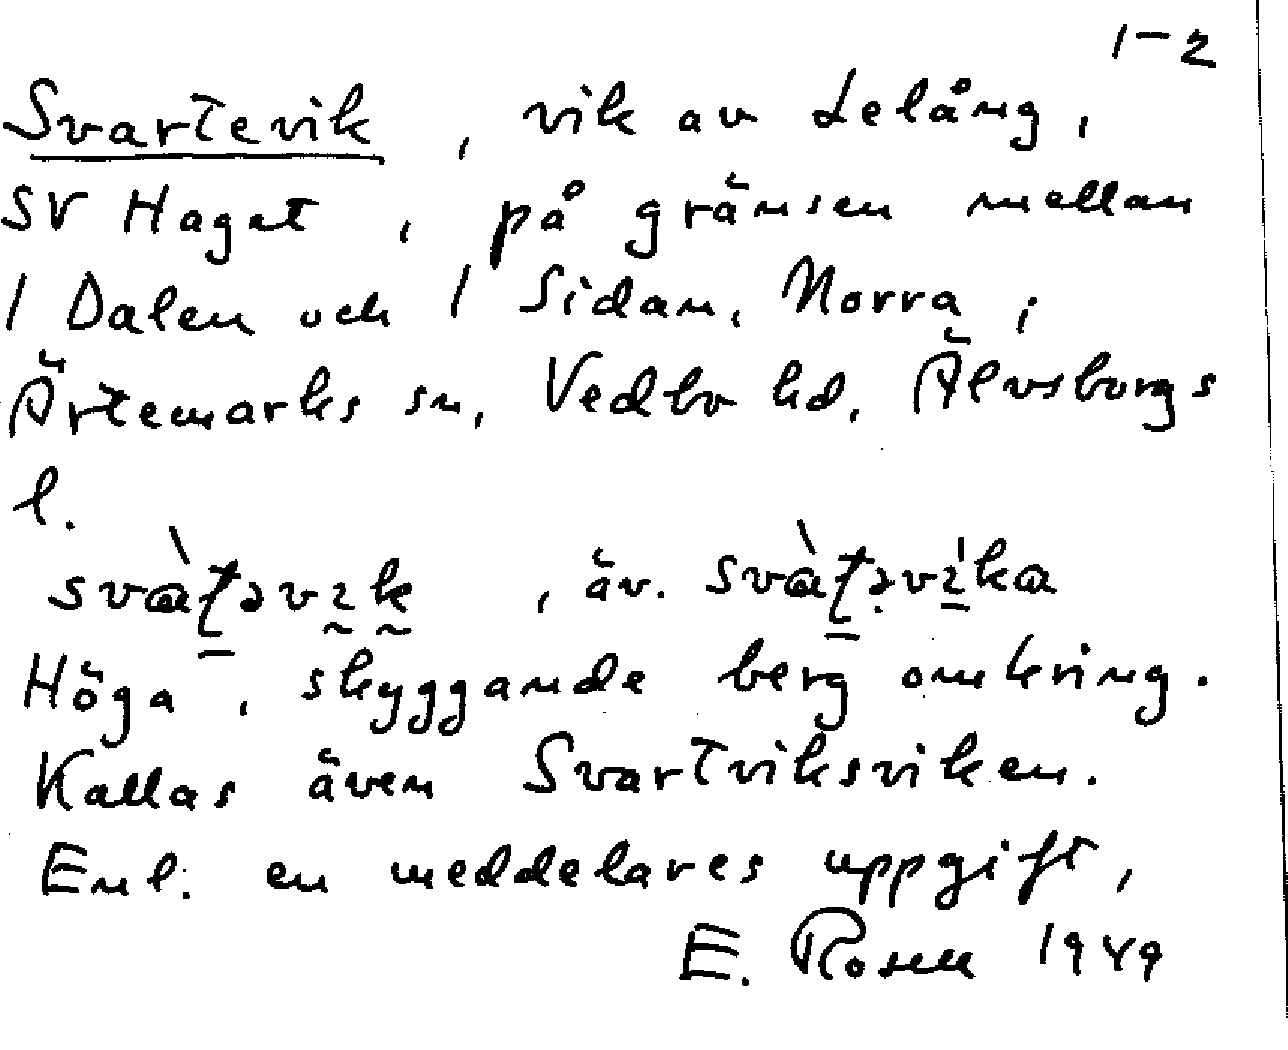 1-2
Svartevik, vik av Lelång,
SV Haget, på gränsen mellan
1 Dalen och 1 Sidan, Norra, i
Ärtemarks sn, Vedbo hd, Älvsborgs
l.
, äv.
Höga, skyggande berg omkring.
Kallas även Svartviksviken.
Enl. en meddelares uppgift,
E. Rosell 1949